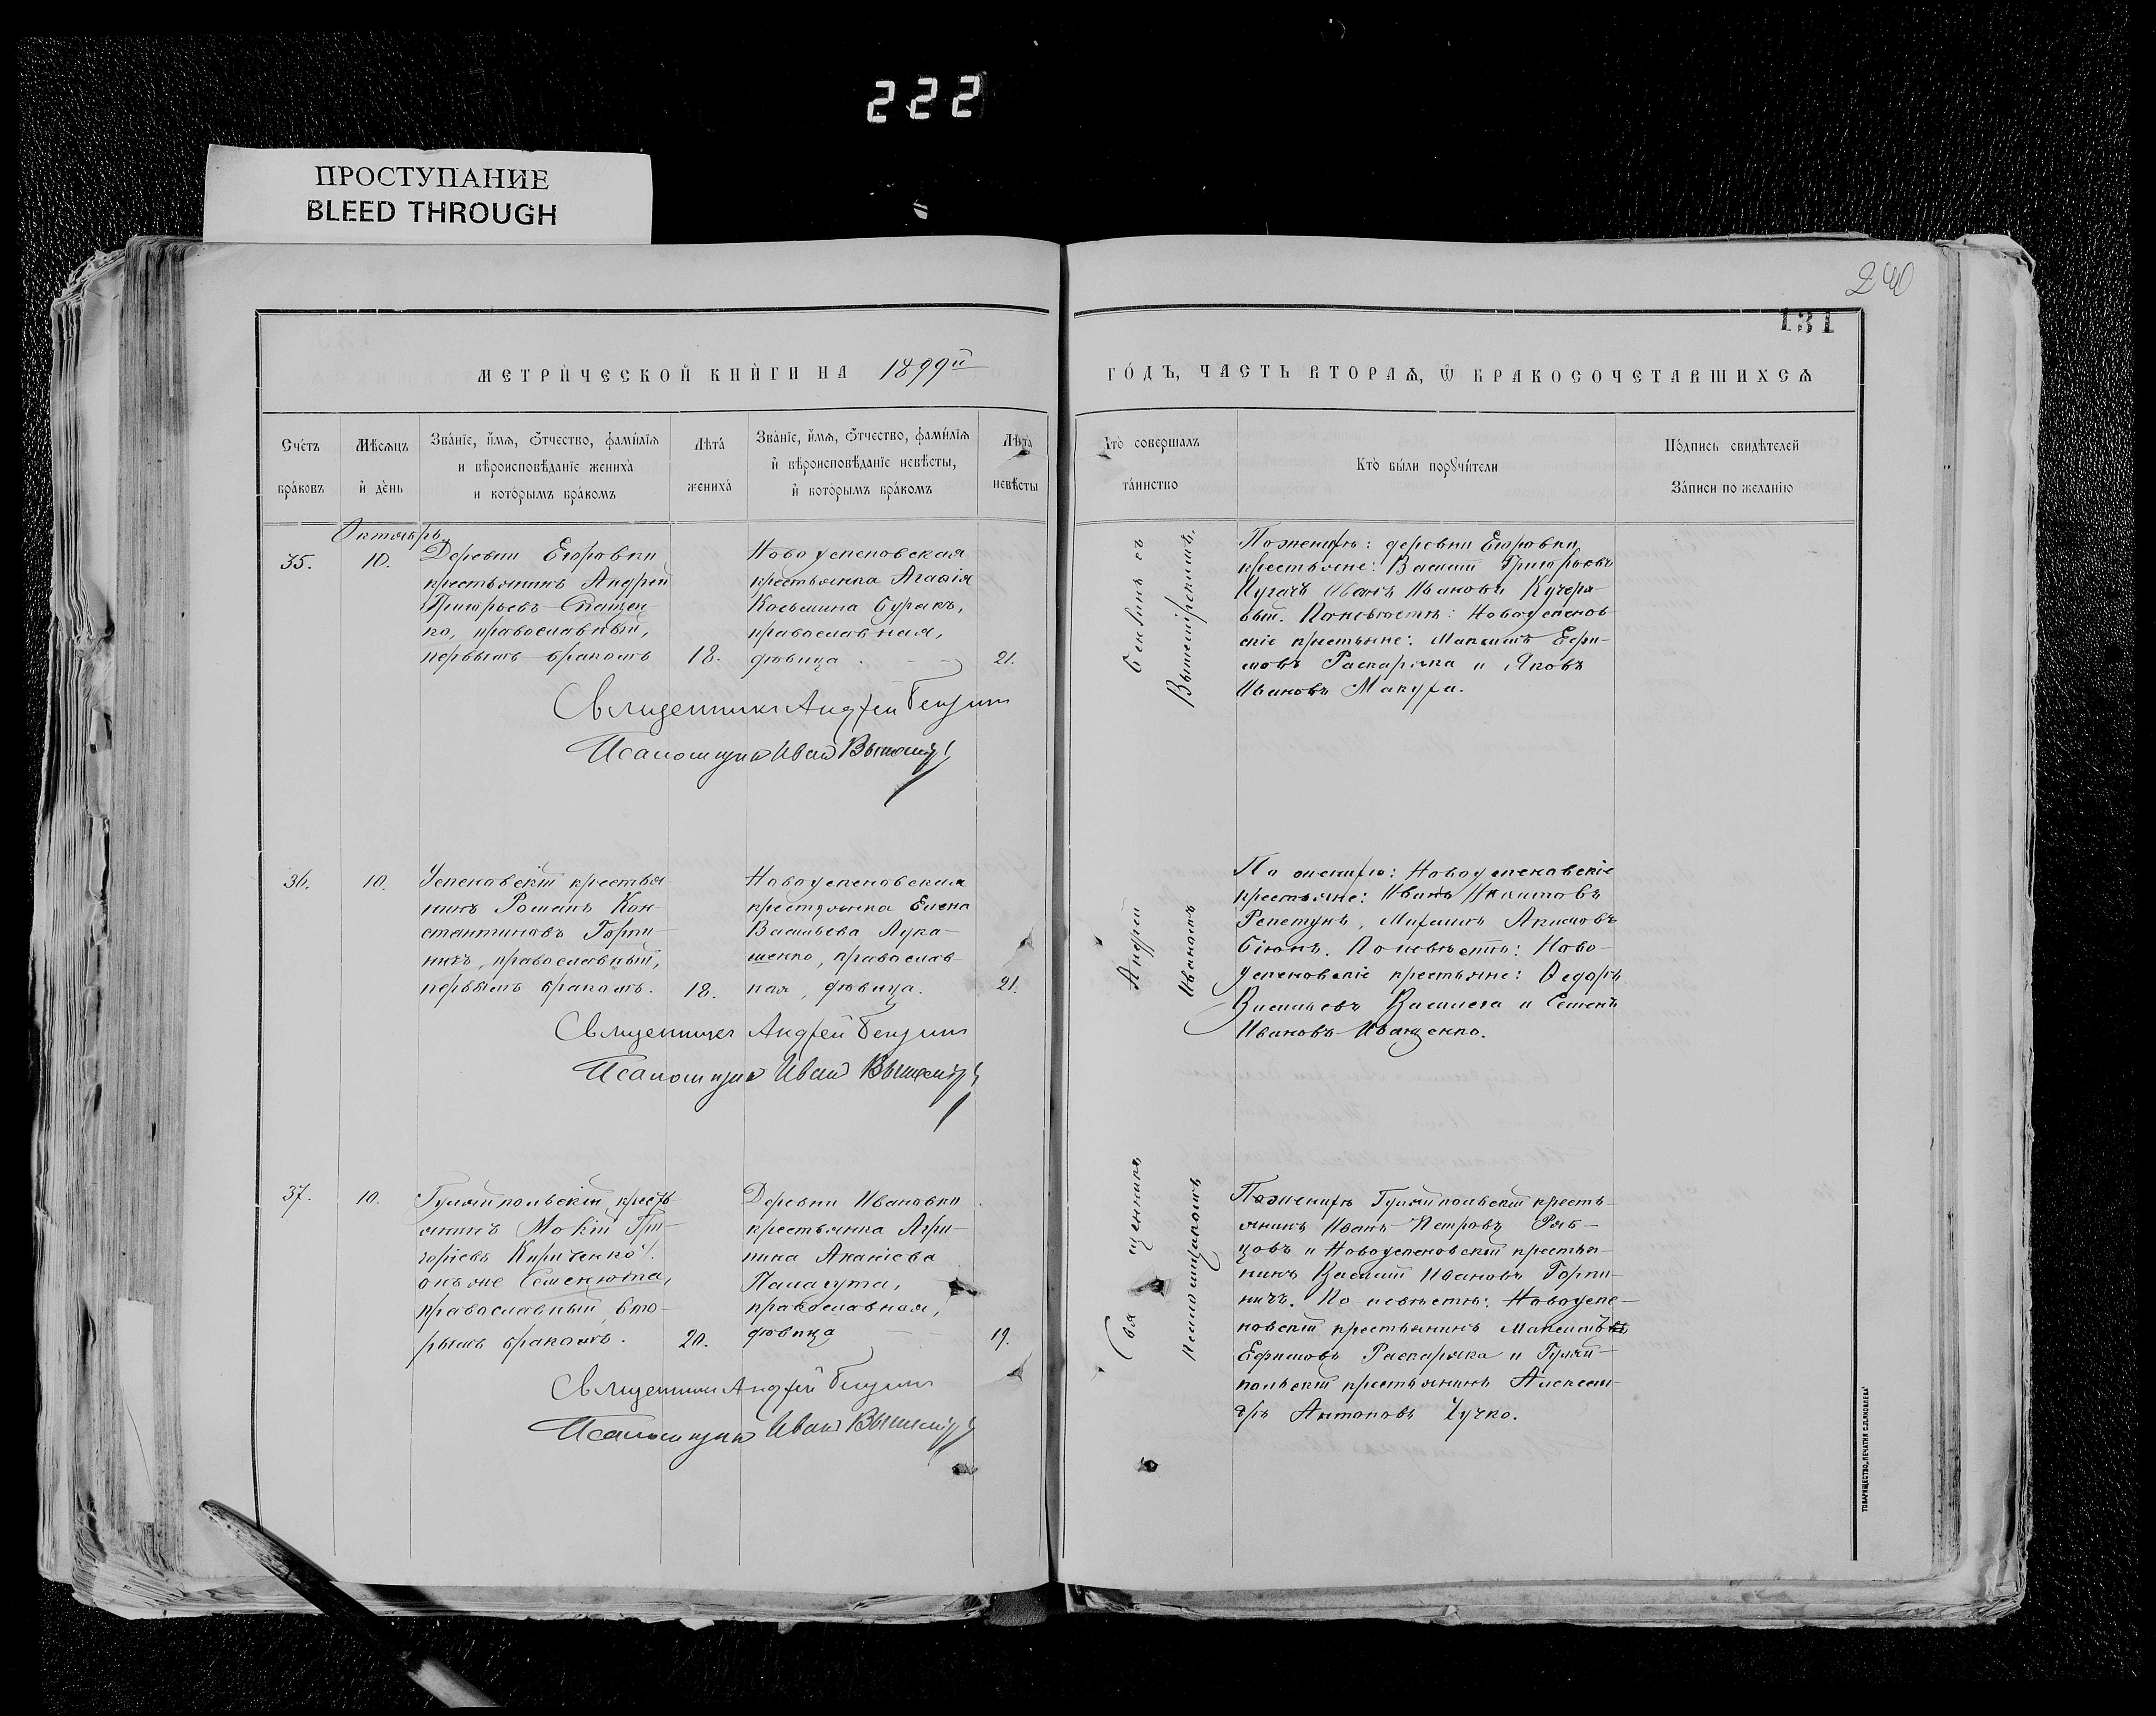 222
ПРОСТУПАНИЕ
BLEED THROUGH
240
131
МЕТРИ́ЧЕСКОЙ КНИ́ГИ НА 1899й
ГО́ДЪ, ЧАСТЬ ВТОРАѦ, Ѿ БРАКОСОЧЕТАВШИХСѦ
Сче́тъ
бра́ковъ
Мѣ́сяцъ
и де́нь
Зва́нїе, и́мѧ, ѻ҆́тчество, фами́лїѧ
и вѣроисповѣ́данїе жениха̀
и кото́рымъ бра́комъ
Лѣта̀
жениха̀
Зва́нїе, и́мѧ, ѻ҆́тчество, фами́лїѧ
и вѣроисповѣ́данїе невѣ́сты,
и кото́рымъ бра́комъ
Лѣта̀
невѣ́сты
Кто̀ совершалъ
та́инство
Кто̀ бы́ли порꙋчи́тели
По́дпись свидѣ́телей
За́писи по жела́нїю
Октябрь
35.
10.
Деревни Егоровки
крестьянинъ Андрей
Григорьевъ
ко, православный,
первымъ бракомъ
18.
Новоуспеновская
крестьянка Агафія
Косьмина Бурякъ,
православная,
дѣвица.
21.
Священникъ Андрей
Псаломщикъ Иван
По женихѣ: деревни Егоровки
крестьяне: Василій Григорьевъ
Пугачъ Иванъ Ивановъ Кучеря-
вый. По невѣстѣ: Новоуспенов
скіе крестьяне: Максимъ Ефи-
мовъ Раскаряка и Яковъ
Ивановъ Мануха.
36.
10.
Успеновскій крестья-
нинъ Романъ Кон-
стантиновъ Горпи-
ничъ, православный,
первымъ бракомъ.
18.
Новоуспеновская
крестьянка Елена
Васильева Лука-
шенко, православ-
ная, дѣвица.
21.
Священникъ Андрей
Псаломщикъ Иван
По женихѣ: Новоуспеновскіе
крестьяне: Иванъ
Репетунъ, Михаилъ Акимовъ
По невѣстѣ: Ново-
успеновскіе крестьяне: Ѳедоръ
Васильевъ и Семенъ
Ивановъ Иващенко.
37.
10.
Гуляйпольскій кресть
янинъ Мокій Гри-
горіевъ Кириченко
онъ же Семенюта,
православный, вто-
рымъ бракомъ.
20.
Деревни Ивановки
крестьянка Агри-
пина Ананіева
Палагута,
православная,
дѣвица
19.
Священникъ Андрей
Псаломщикъ Иван
По женихѣ Гуляйпольскій кресть-
янинъ Иванъ Петровъ Ряб-
цовъ и Новоуспеновскій крестья-
нинъ Василій Ивановъ Горпи-
ничъ. По невѣстѣ: Новоуспе-
новскій крестьянинъ Максимъ
Ефимовъ Раскаряка и Гуляй-
польскій крестьянинъ Алексан-
дръ Антоновъ Чучко.
Священникъ Андрей
псаломщикомъ Иваномъ
ТОВАРИЩЕСТВО „ПЕЧАТНЯ С.П.ЯКОВЛЕВА"